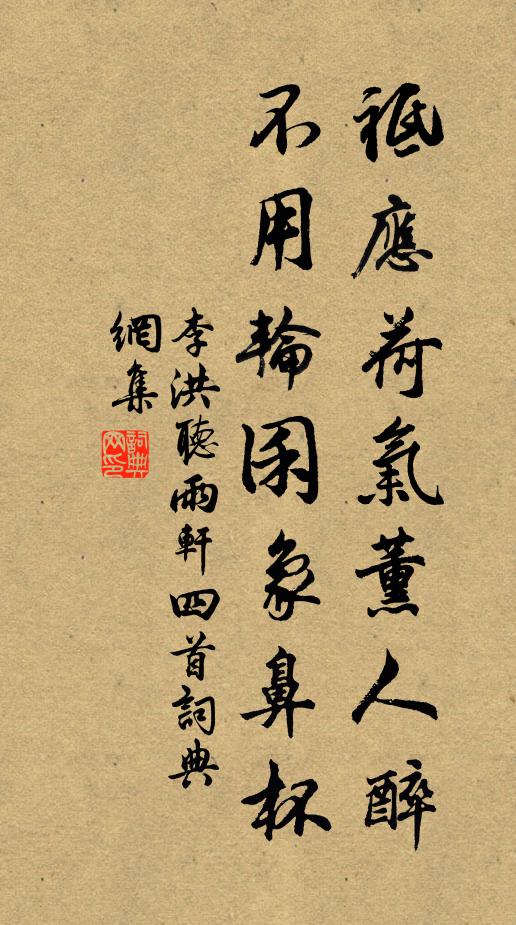 祗應荷氣薰人醉
不用輪囷象鼻杯
李洪聽雨軒四首詞典
網集
詞典網印